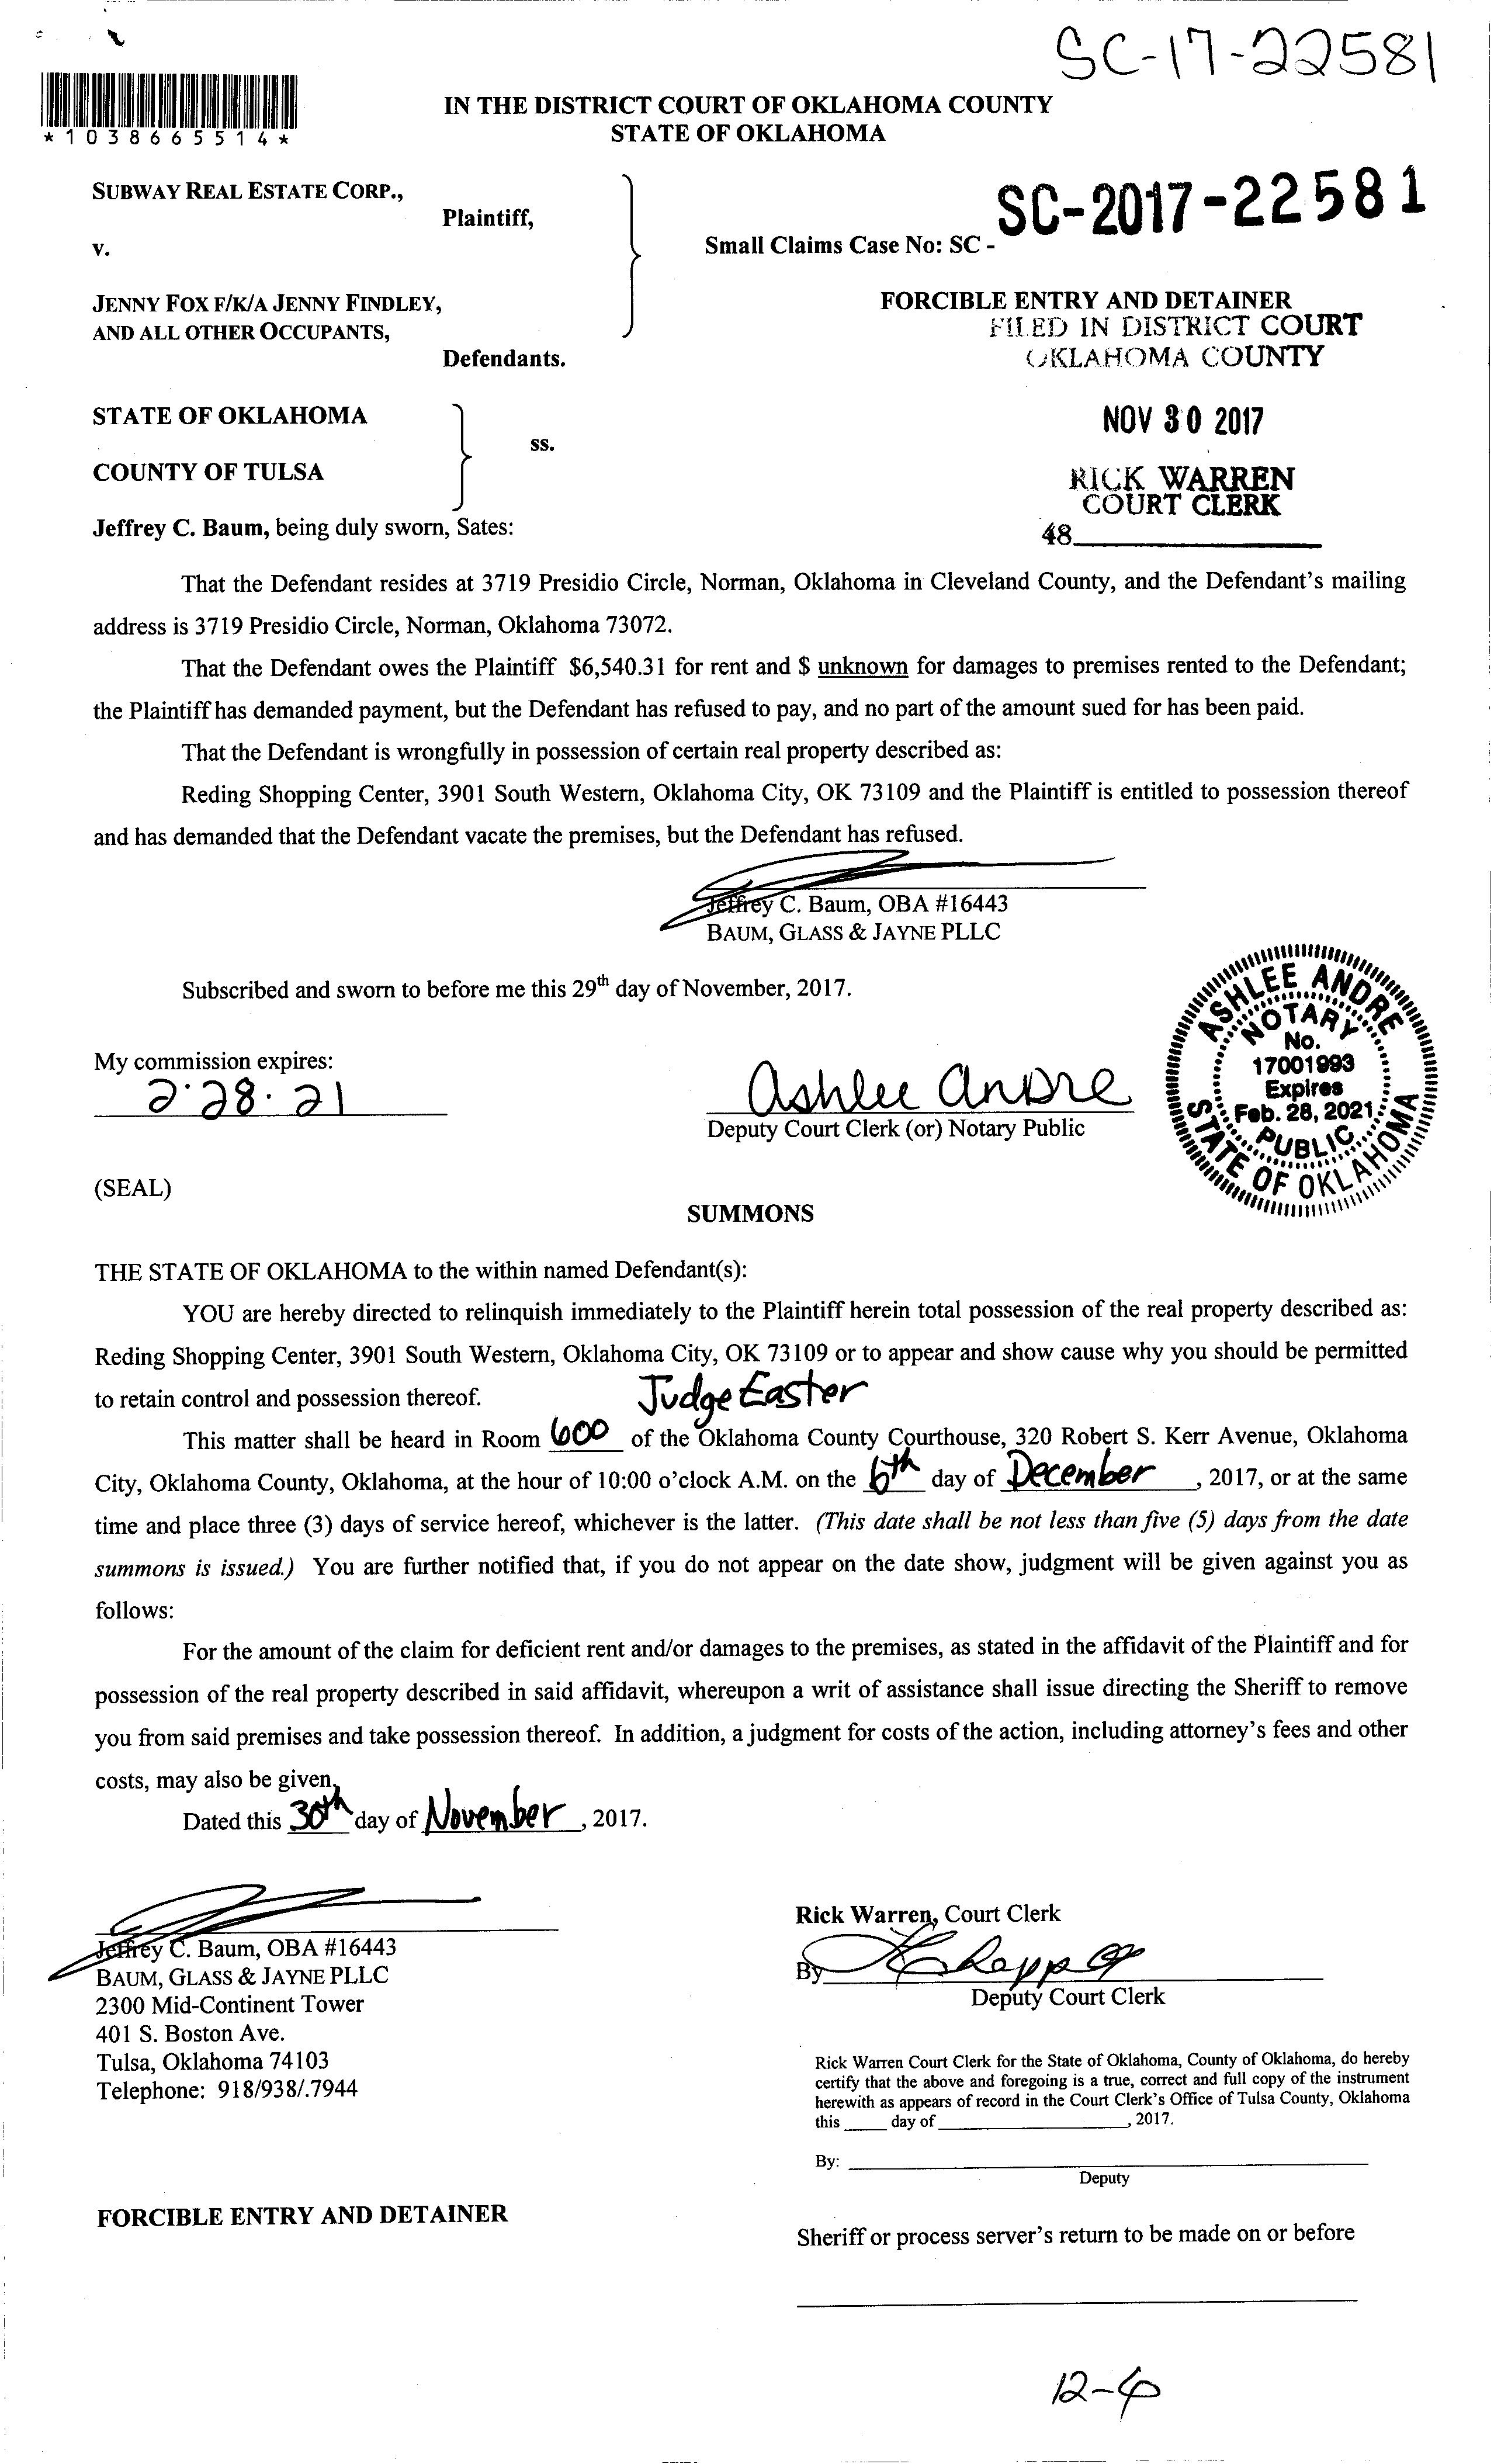 SC-17-22581
*1038665514*
IN THE DISTRICT COURT OF OKLAHOMA COUNTY
STATE OF OKLAHOMA
SUBWAY REAL ESTATE CORP.,
Plaintiff,
v.
SC-2017-22581
Small Claims Case No: SC -
JENNY FOX F/K/A JENNY FINDLEY,
AND ALL OTHER OCCUPANTS,
Defendants.
FORCIBLE ENTRY AND DETAINER
FILED IN DISTRICT COURT
OKLAHOMA COUNTY
STATE OF OKLAHOMA
ss.
COUNTY OF TULSA
NOV 30 2017
RICK WARREN
COURT CLERK
48
Jeffrey C. Baum, being duly sworn, Sates:
That the Defendant resides at 3719 Presidio Circle, Norman, Oklahoma in Cleveland County, and the Defendant's mailing
address is 3719 Presidio Circle, Norman, Oklahoma 73072.
That the Defendant owes the Plaintiff $6,540.31 for rent and $ unknown for damages to premises rented to the Defendant;
the Plaintiff has demanded payment, but the Defendant has refused to pay, and no part of the amount sued for has been paid.
That the Defendant is wrongfully in possession of certain real property described as:
Reding Shopping Center, 3901 South Western, Oklahoma City, OK 73109 and the Plaintiff is entitled to possession thereof
and has demanded that the Defendant vacate the premises, but the Defendant has refused.
Jeffrey C. Baum, OBA #16443
BAUM, GLASS & JAYNE PLLC
Subscribed and sworn to before me this 29th day of November, 2017.
My commission expires:
2·28·21
Ashlee Andre
Deputy Court Clerk (or) Notary Public
ASHLEE ANDRE
NOTARY
No.
17001993
Expires
Feb. 28, 2021
PUBLIC
STATE OF OKLAHOMA
(SEAL)
SUMMONS
THE STATE OF OKLAHOMA to the within named Defendant(s):
YOU are hereby directed to relinquish immediately to the Plaintiff herein total possession of the real property described as:
Reding Shopping Center, 3901 South Western, Oklahoma City, OK 73109 or to appear and show cause why you should be permitted
to retain control and possession thereof.
Judge Easter
This matter shall be heard in Room 600 of the Oklahoma County Courthouse, 320 Robert S. Kerr Avenue, Oklahoma
City, Oklahoma County, Oklahoma, at the hour of 10:00 o'clock A.M. on the 6th day of December, 2017, or at the same
time and place three (3) days of service hereof, whichever is the latter. (This date shall be not less than five (5) days from the date
summons is issued.) You are further notified that, if you do not appear on the date show, judgment will be given against you as
follows:
For the amount of the claim for deficient rent and/or damages to the premises, as stated in the affidavit of the Plaintiff and for
possession of the real property described in said affidavit, whereupon a writ of assistance shall issue directing the Sheriff to remove
you from said premises and take possession thereof. In addition, a judgment for costs of the action, including attorney's fees and other
costs, may also be given.
Dated this 30th day of November, 2017.
Jeffrey C. Baum, OBA #16443
BAUM, GLASS & JAYNE PLLC
2300 Mid-Continent Tower
401 S. Boston Ave.
Tulsa, Oklahoma 74103
Telephone: 918/938/.7944
Rick Warren, Court Clerk
By
Deputy Court Clerk
Rick Warren Court Clerk for the State of Oklahoma, County of Oklahoma, do hereby
certify that the above and foregoing is a true, correct and full copy of the instrument
herewith as appears of record in the Court Clerk's Office of Tulsa County, Oklahoma
this _____ day of _____, 2017.
By:
Deputy
FORCIBLE ENTRY AND DETAINER
Sheriff or process server's return to be made on or before